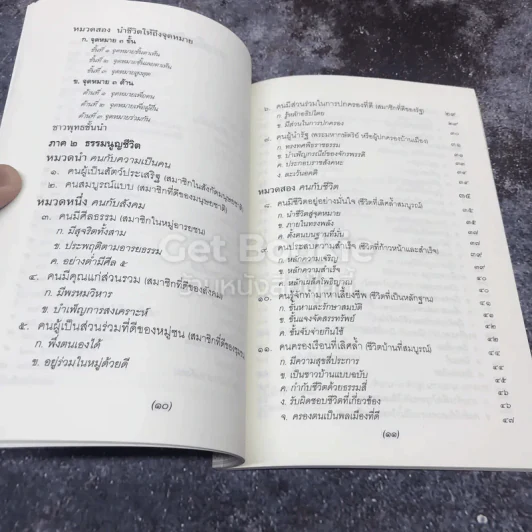 หมวดสอง นำชีวิตให้ถึงจุดหมาย
ก. จุดหมาย ๓ ขั้น
ขั้นที่ ๑ จุดหมายขั้นตาเห็น
ขั้นที่ ๒ จุดหมายขั้นเลยตาเห็น
ขั้นที่ ๓ จุดหมายสูงสุด
ข. จุดหมาย ๓ ด้าน
ด้านที่ ๑ จุดหมายเพื่อตน
ด้านที่ ๒ จุดหมายเพื่อผู้อื่น
ด้านที่ ๓ จุดหมายร่วมกัน
ชาวพุทธชั้นนำ
ภาค ๒ ธรรมนูญชีวิต
หมวดนำ คนกับความเป็นคน
๑. คนผู้เป็นสัตว์ประเสริฐ (สมาชิกในสังคมมนุษยชาติ)
๒. คนสมบูรณ์แบบ (สมาชิกที่ดีของมนุษยชาติ)
หมวดหนึ่ง คนกับสังคม
๓. คนมีศีลธรรม (สมาชิกในหมู่อารยชน)
ก. มีสุจริตทั้งสาม
ข. ประพฤติตามอารยธรรม
ค. อย่างต่ำมีศีล ๕
๔. คนมีคุณแก่ส่วนรวม (สมาชิกที่ดีของสังคม)
ก. มีพรหมวิหาร
ข. บำเพ็ญการสงเคราะห์
๕. คนผู้เป็นส่วนร่วมที่ดีของหมู่ชน (สมาชิกที่ดีของชุมชน)
ก. พึ่งตนเองได้
ข. อยู่ร่วมในหมู่ด้วยดี
(๑๐)
๖. คนมีส่วนร่วมในการปกครองที่ดี (สมาชิกที่ดีของรัฐ)
ก. รู้หลักอธิปไตย
ข. มีส่วนในการปกครอง
๗. คนผู้นำรัฐ (พระมหากษัตริย์ หรือผู้ปกครองบ้านเมือง)
ก. ทรงทศพิธราชธรรม
ข. บำเพ็ญกรณีย์ของจักรพรรดิ
ค. ประกอบราชสังคหะ
ง. ละเว้นอคติ
หมวดสอง คนกับชีวิต
๘. คนมีชีวิตอยู่อย่างมั่นใจ (ชีวิตที่เลิศล้ำสมบูรณ์)
ก. นำชีวิตสู่จุดหมาย
ข. ภายในทรงพลัง
ค. ตั้งตนบนฐานที่มั่น
๙. คนประสบความสำเร็จ (ชีวิตที่ก้าวหน้าและสำเร็จ)
ก. หลักความเจริญ
ข. หลักความสำเร็จ
ค. หลักเผล็ดโพธิญาณ
๑๐. คนรู้จักทำมาหาเลี้ยงชีพ (ชีวิตที่เป็นหลักฐาน)
ก. ขั้นหาและรักษาสมบัติ
ข. ขั้นแจงจัดสรรทรัพย์
ค. ขั้นจับจ่ายกินใช้
๑๑. คนครองเรือนที่เลิศล้ำ (ชีวิตบ้านที่สมบูรณ์)
ก. มีความสุขสี่ประการ
ข. เป็นชาวบ้านแบบฉบับ
ค. กำกับชีวิตด้วยธรรมสี่
ง. รับผิดชอบชีวิตที่เกี่ยวข้อง
จ. ครองตนเป็นพลเมืองที่ดี
(๑๑)